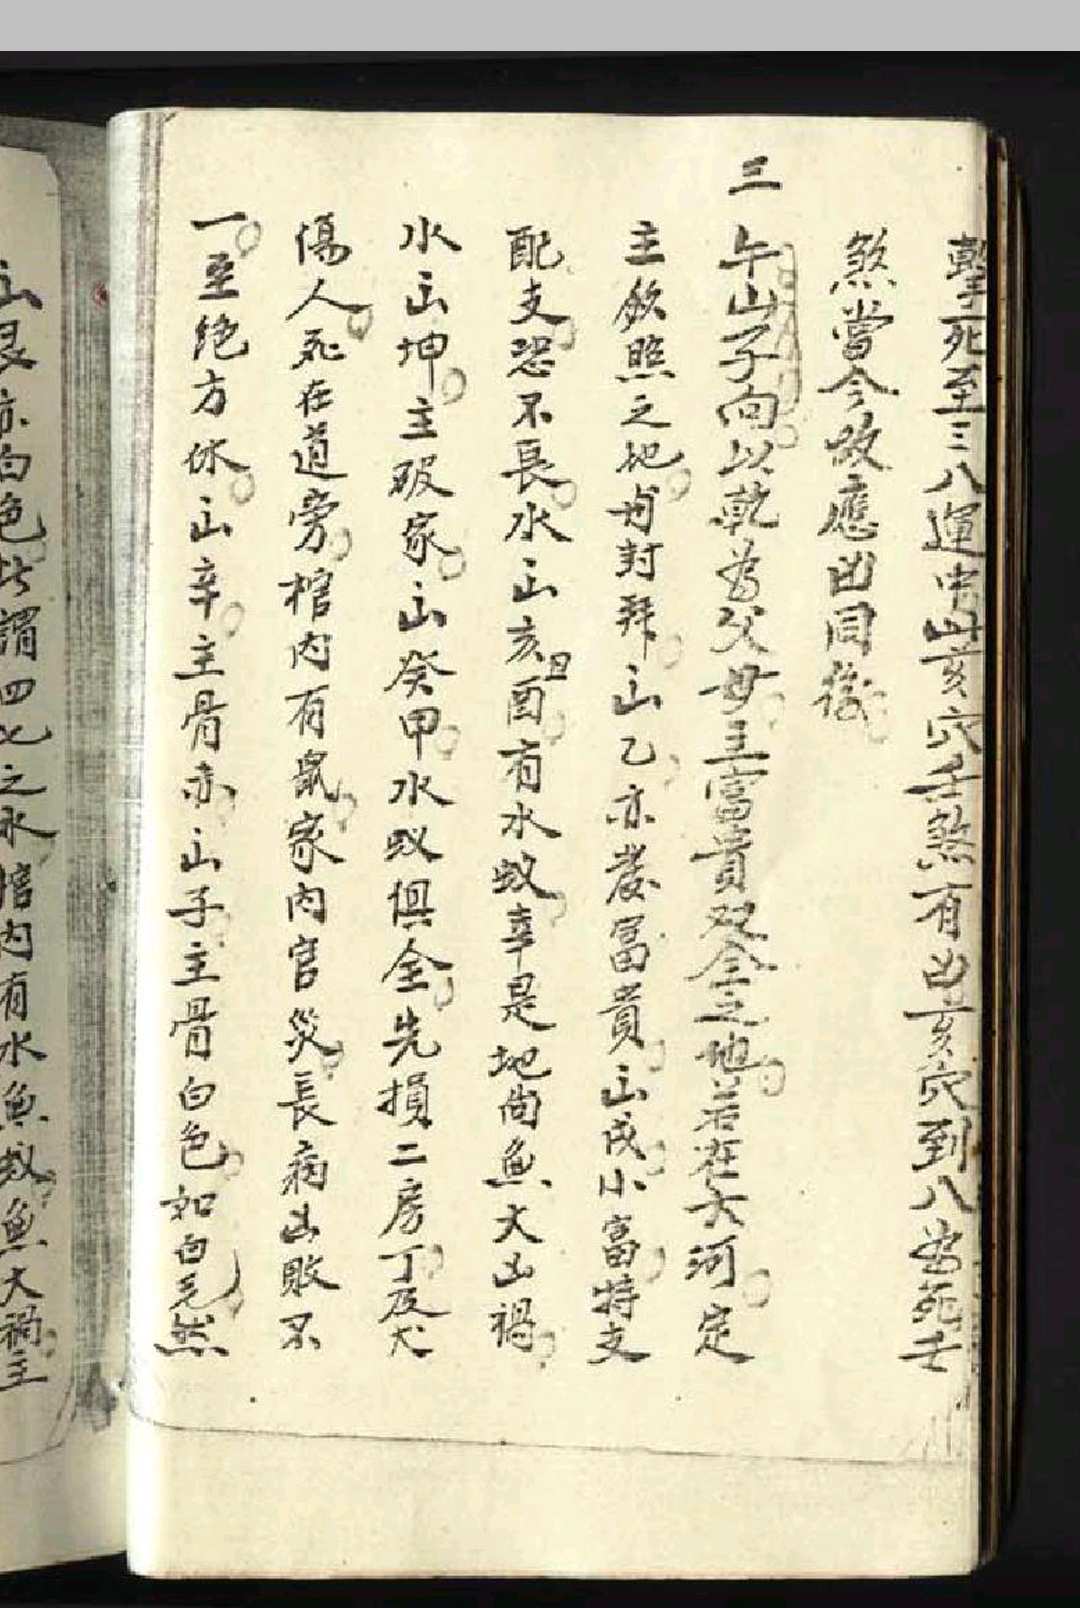 擊死至三八運中山亥穴壬煞有凶亥穴到八必死壬
煞當今故應凶同後
三 午山子向以乾為父母主富貴双全之地若在大河定
主欽照之地封拜山乙亦發富貴山戌小富特支
配支恐不長水山亥丑酉有水蚁幸是地尚魚大凶禍
水山坤主破家山癸甲水蚁俱全先損二房丁及犬
傷人死在道旁棺內有鼠家內官災長病凶敗不
一至絕方休山辛主骨赤山子主骨白色如白毛然
山艮亦白色此謂四七之水棺內有水魚蚁魚大禍主